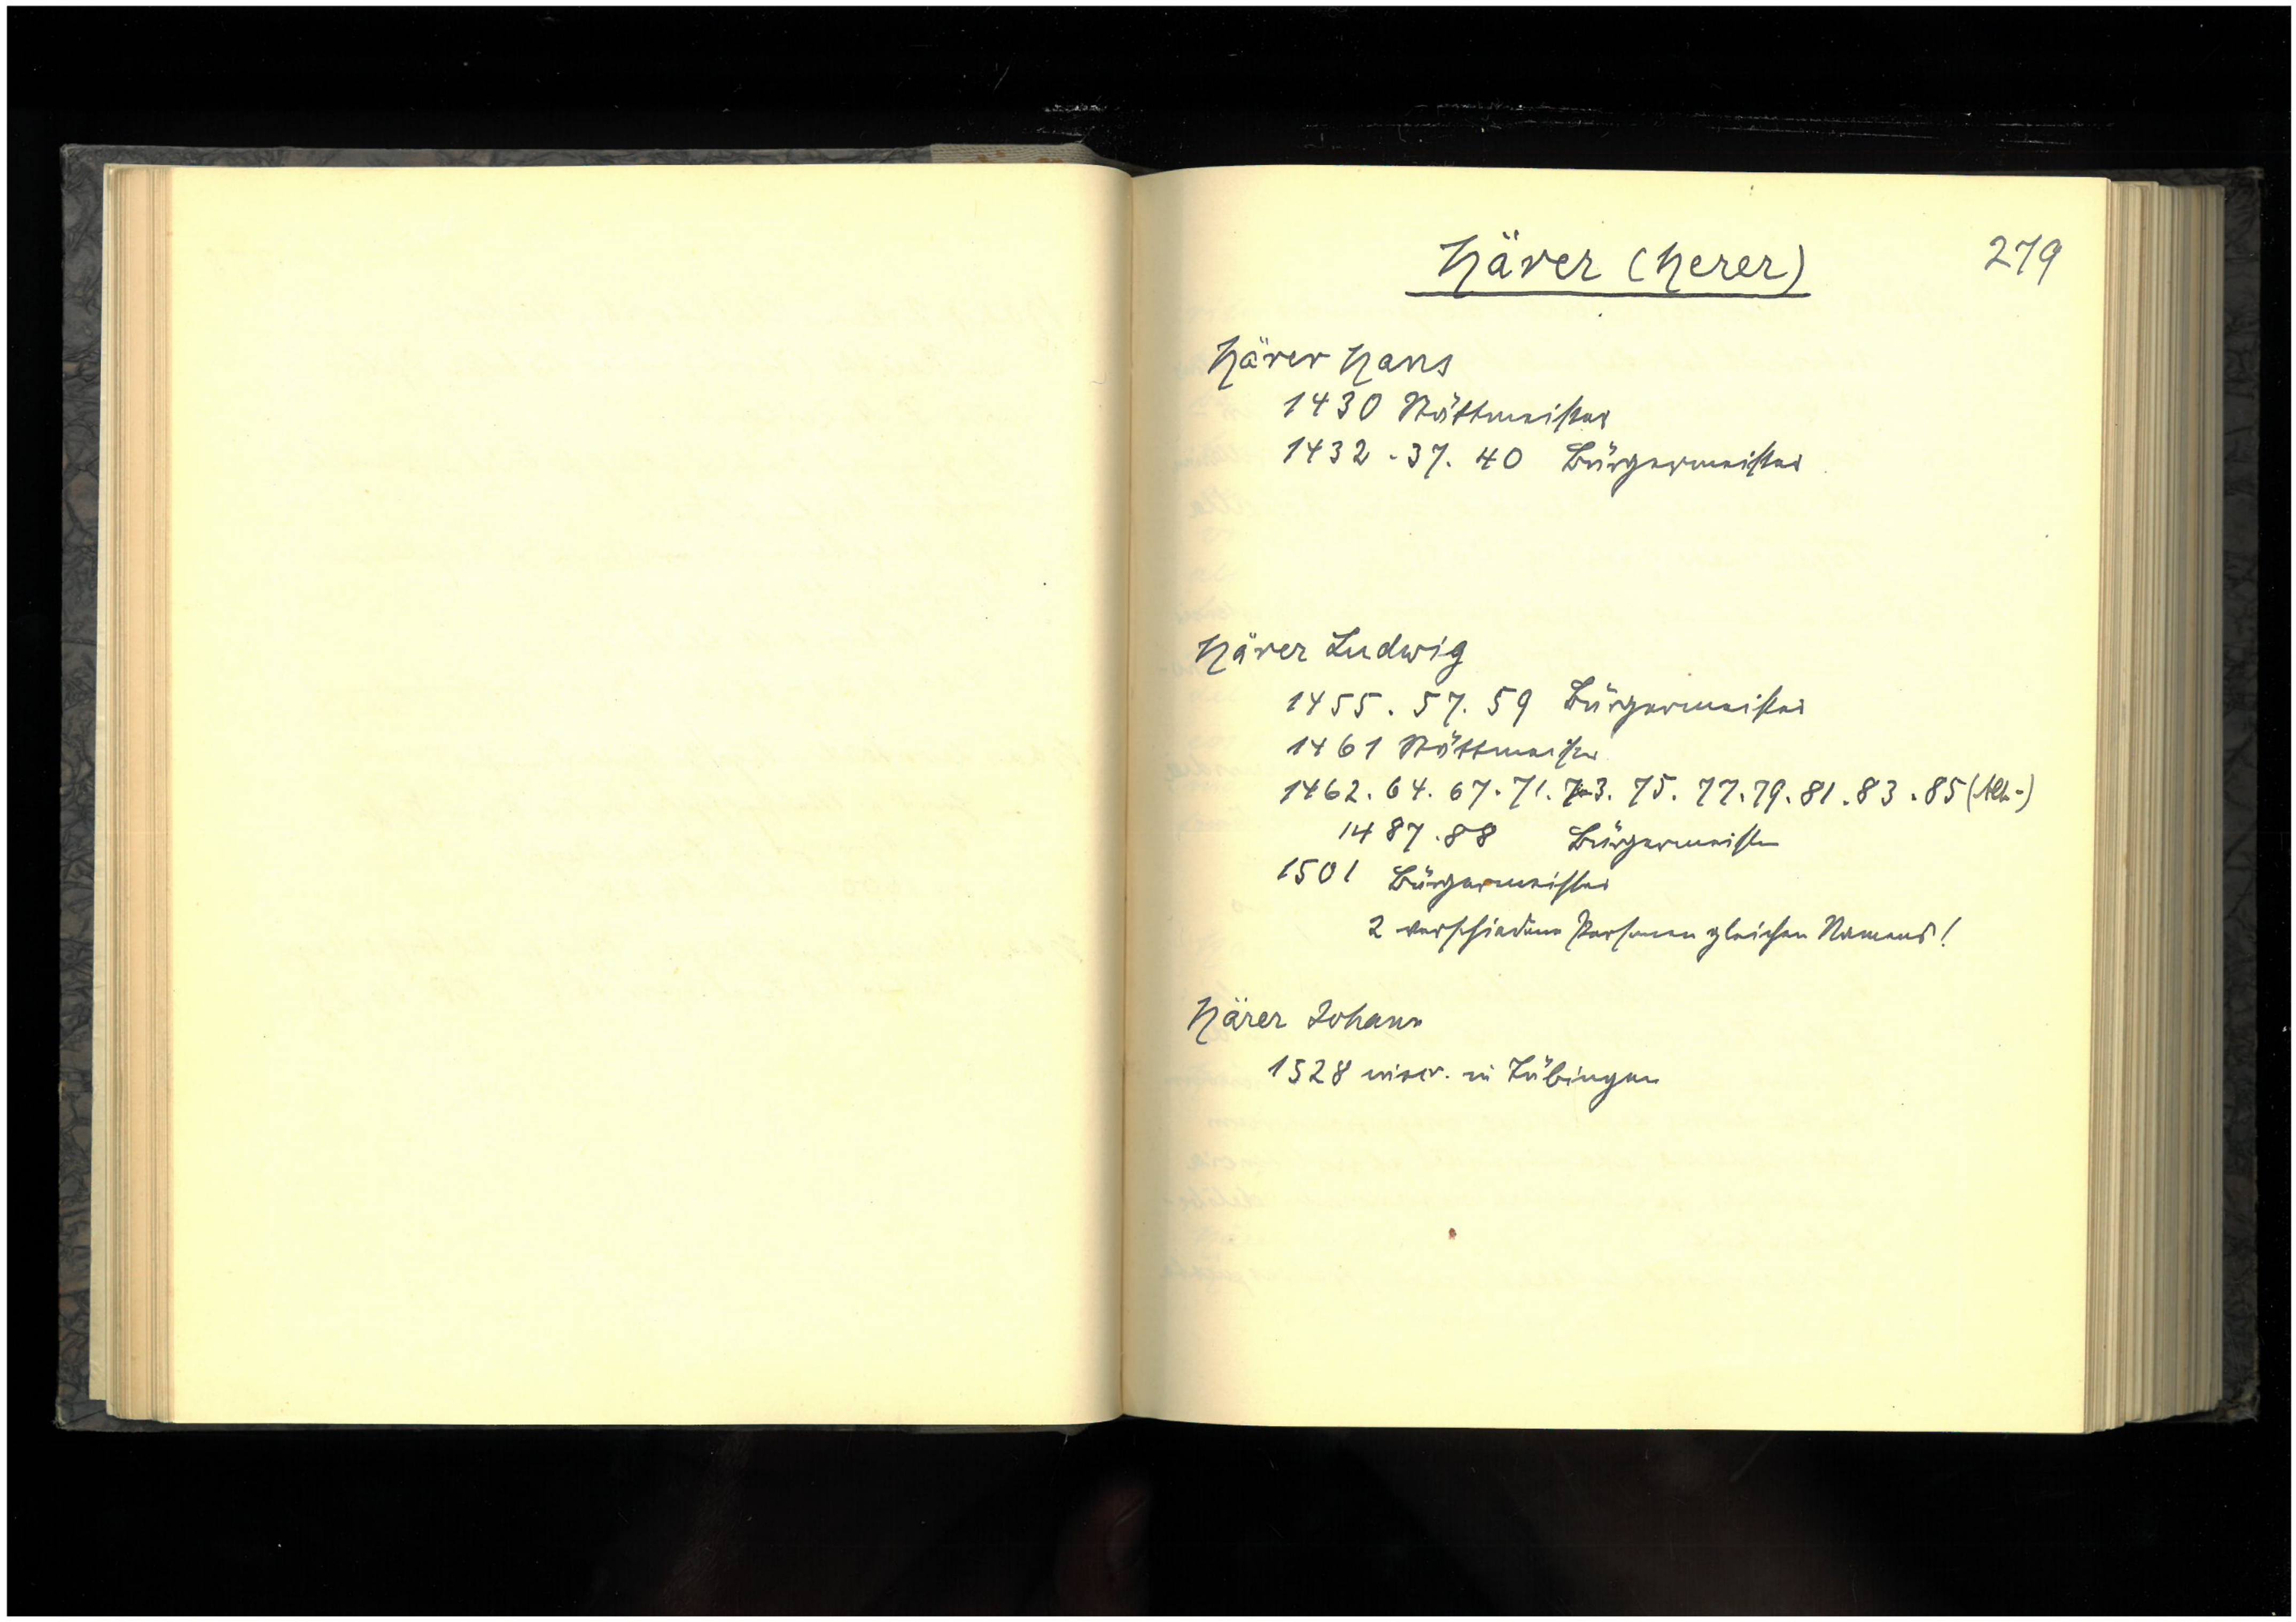 279
Härer (Herer)
Härer Hans
1430 Stättmeister
1432 . 37. 40 Bürgermeister
Härer Ludwig
1455 . 57. 59 Bürgermeister
1461 Stättmeister
1462. 64. 67. 71. 73. 75. 77. 79. 81. 83. 85 (Alt-)
1487. 88 Bürgermeister
1501 Bürgermeister
2 verschiedene Personen gleichen Namens!
Härer Johann
1528 inscr. in Tübingen